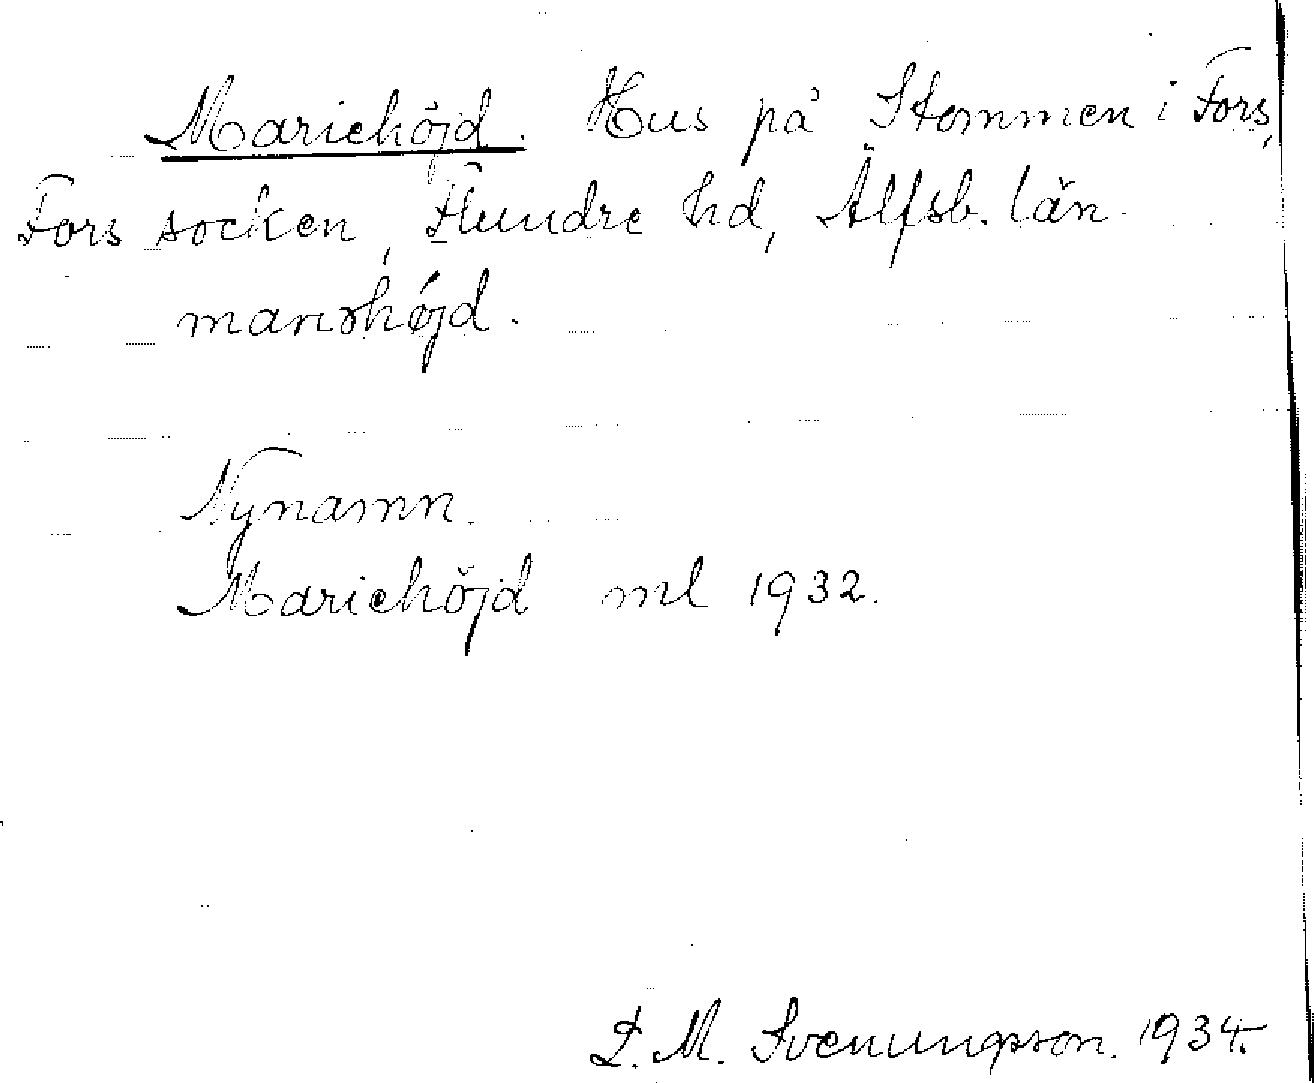 Mariehöjd. Hus på Stommen i Fors,
Fors socken, Flundre hd, Älfsb. län.
marishöjd.
Nynamn.
Mariehöjd ml 1932.
D. M. Svenungsson. 1934.